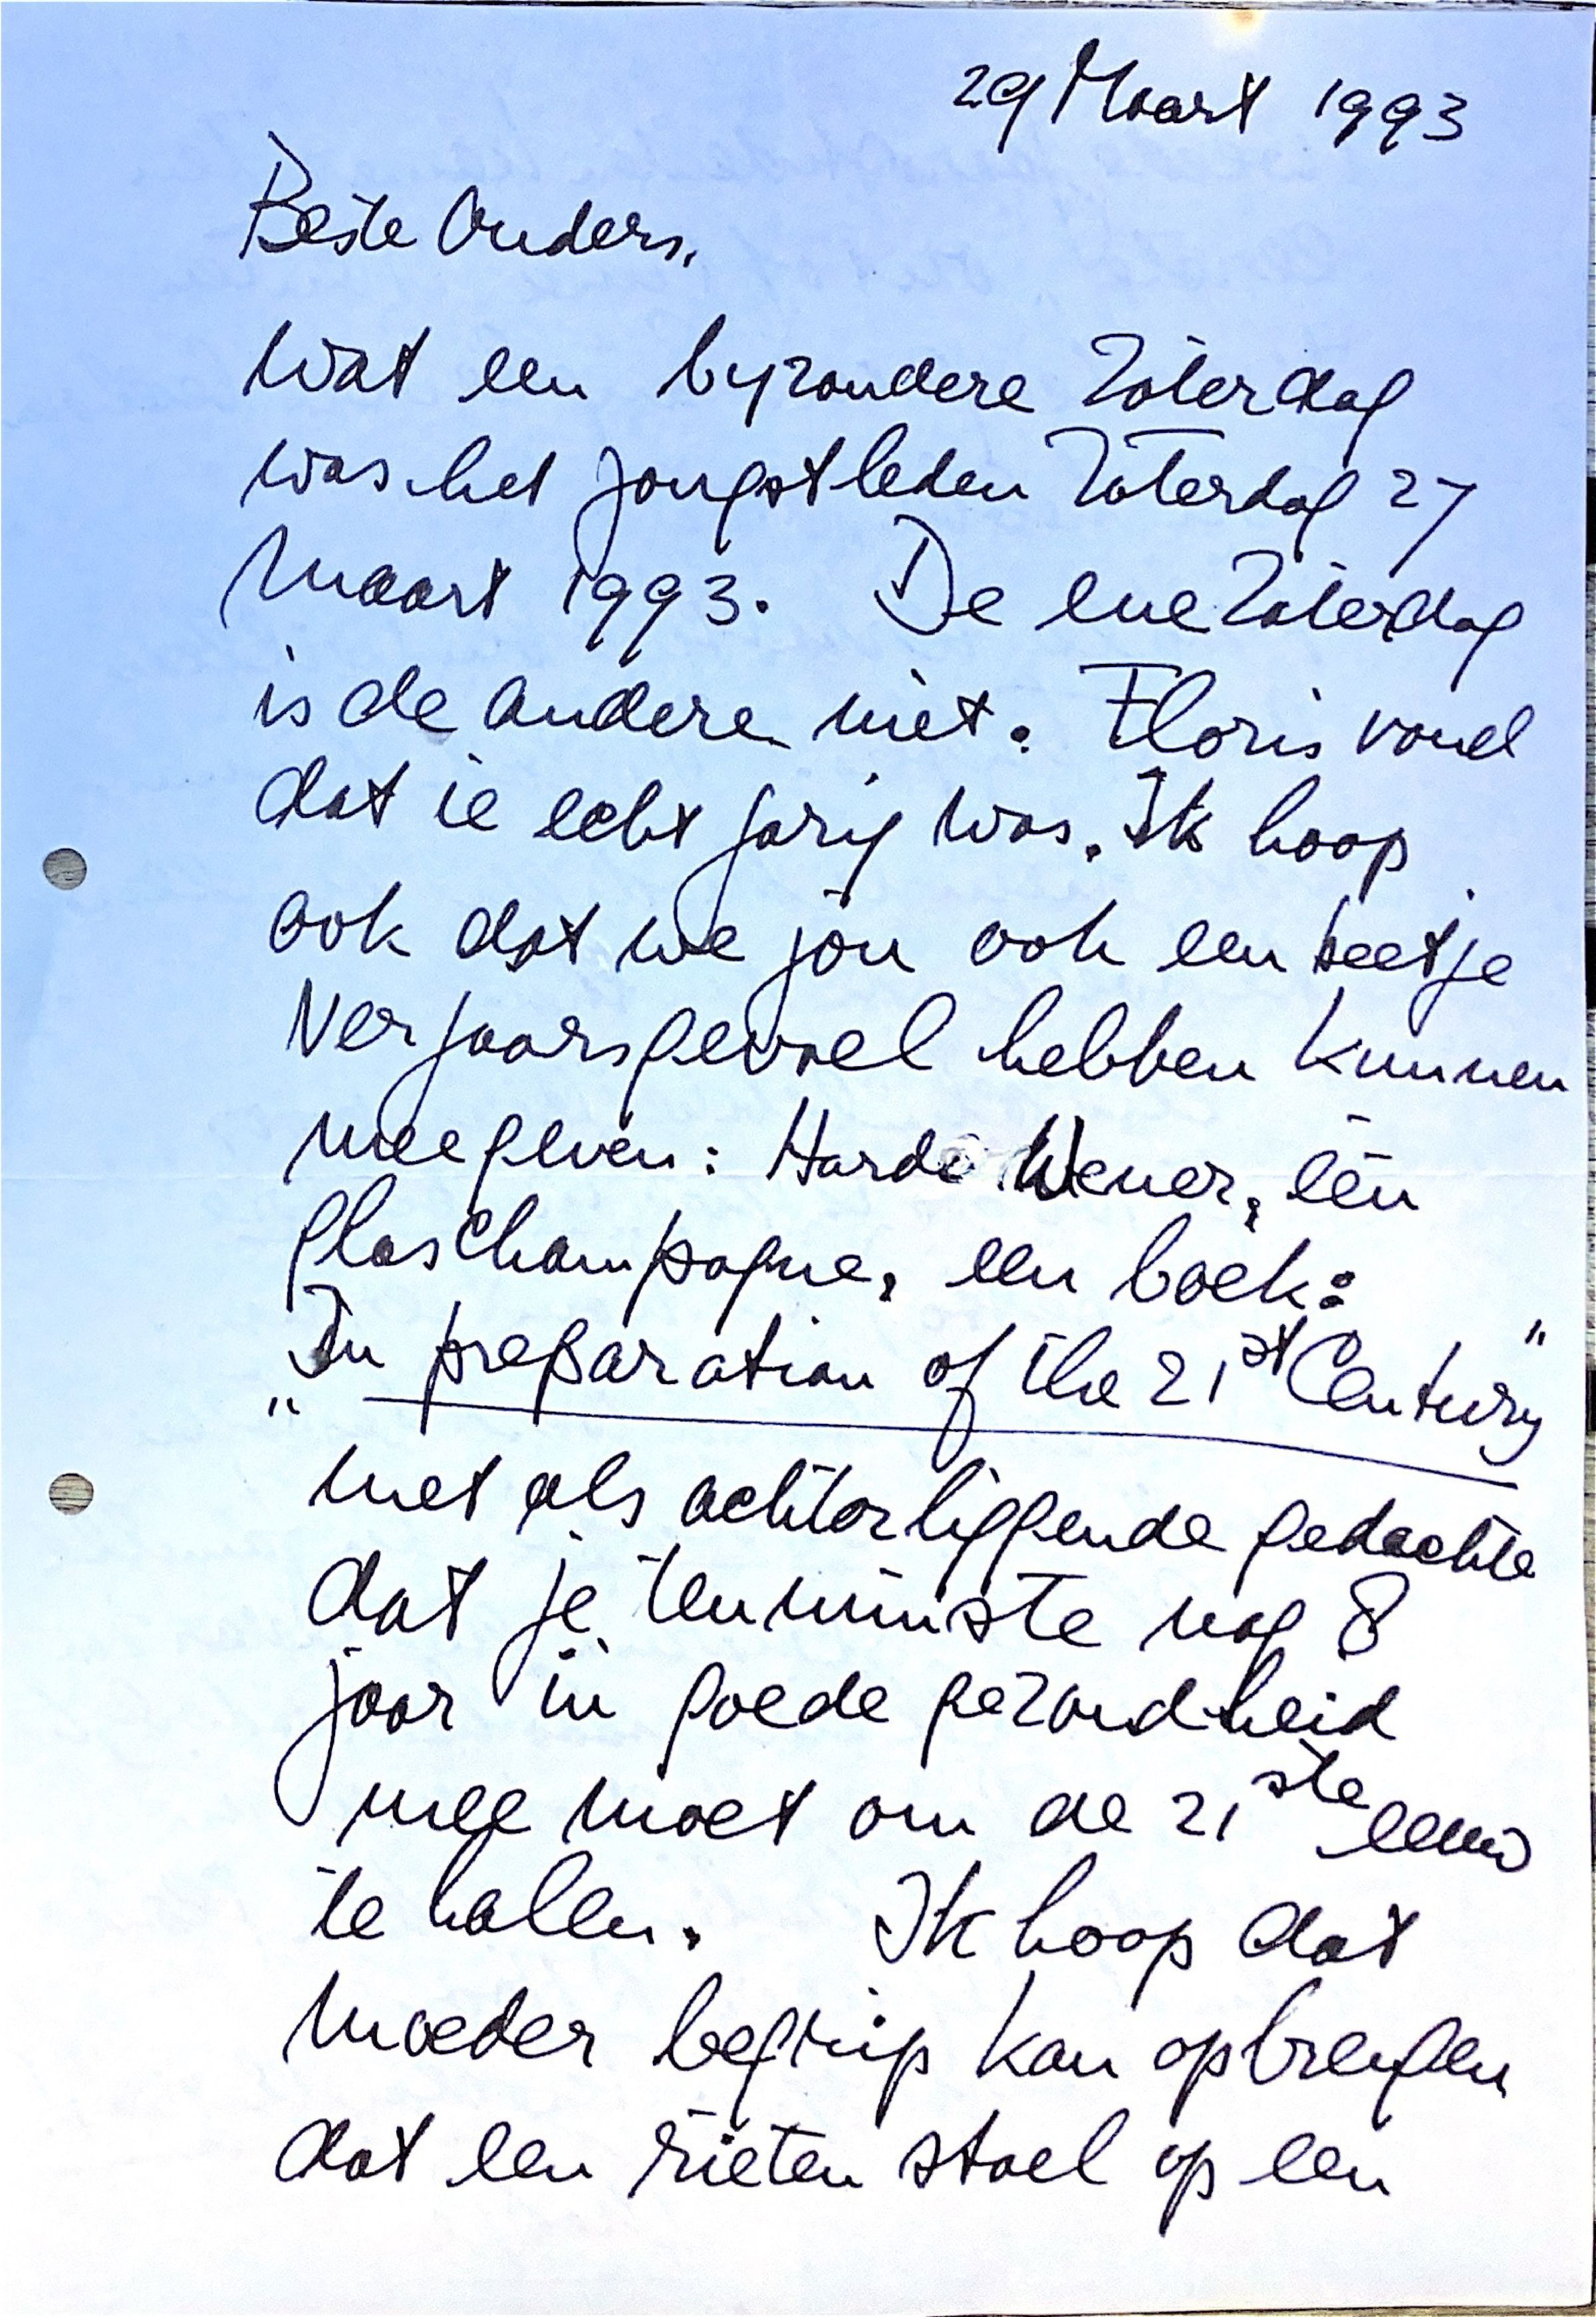 29 Maart 1993
Beste Ouders,
Wat een byzondere Zaterdag
was het jongstleden Zaterdag 27
Maart 1993. De ene Zaterdag
is de andere niet. Floris vond
dat ie echt jarig was. Ik hoop
ook dat we jou ook een beetje
Verjaarsgevoel hebben kunnen
meegeven: Harde Wener, één
glas Champagne, een boek:
"In preparation of the 21st Century"
met als achterliggende gedachte
dat je tenminste nog 8
jaar in goede gezondheid
mee moet om de 21ste eeuw
te halen. Ik hoop dat
Moeder begrip kan opbrengen
dat een rieten stoel op een